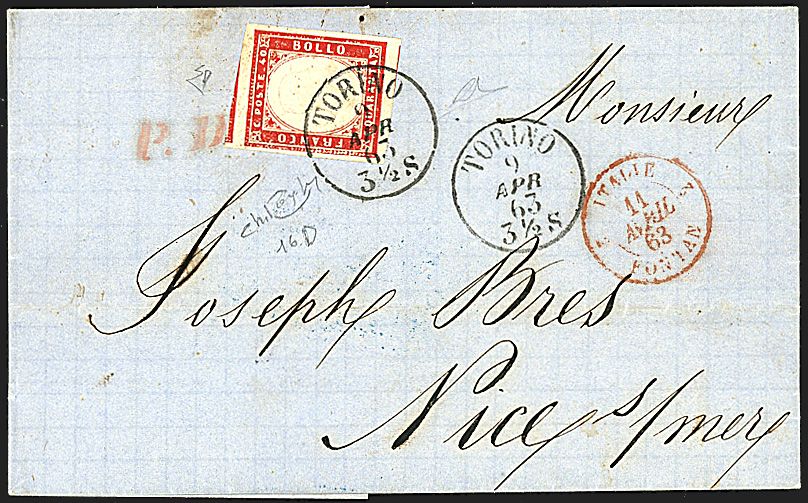 BOLLO
C. POSTE. 40
QUARANTA
FRANCO
P. D.
TORINO
9
APR
63
3½ S
TORINO
9
APR
63
3½ S
ITALIE
11
AVRIL
63
FONTAN
Monsieur
16.D
Joseph Bres
Nice s/mer